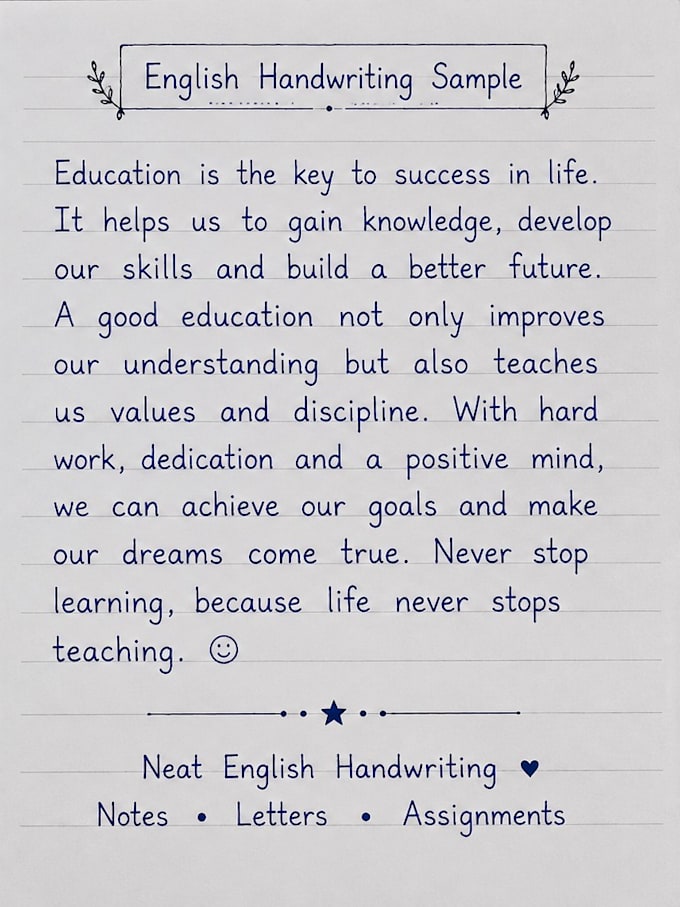 English Handwriting Sample
Education is the key to success in life.
It helps us to gain knowledge, develop
our skills and build a better future.
A good education not only improves
our understanding but also teaches
us values and discipline. With hard
work, dedication and a positive mind,
we can achieve our goals and make
our dreams come true. Never stop
learning, because life never stops
teaching. ☺
Neat English Handwriting ♥
Notes • Letters • Assignments